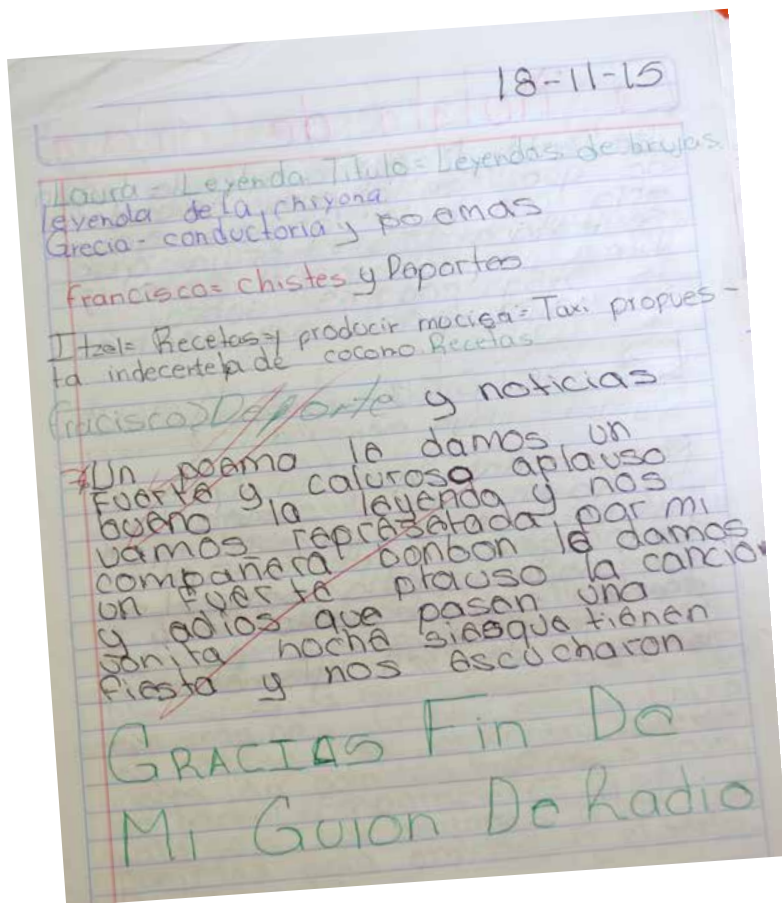 18-11-15
Laura = Leyenda Titulo = Leyendas de brujas
leyenda de la chiyona
Grecia - conductoria y poemas
Francisco = chistes y Deportes
Itzel = Recetas y producir mucisa = Taxi propues-
ta indecertepa de cocono Recetas
(fracisco) Deporte y noticias
Un poema le damos un
fuerte y caluroso aplauso
bueno la leyenda y nos
vamos represetada por mi
compañera bonbon le damos
un fuerte plauso la canción
y adios que pasen una
bonita noche si es que tienen
fiesta y nos escucharon
GRACIAS Fin De
Mi Guion De Radio